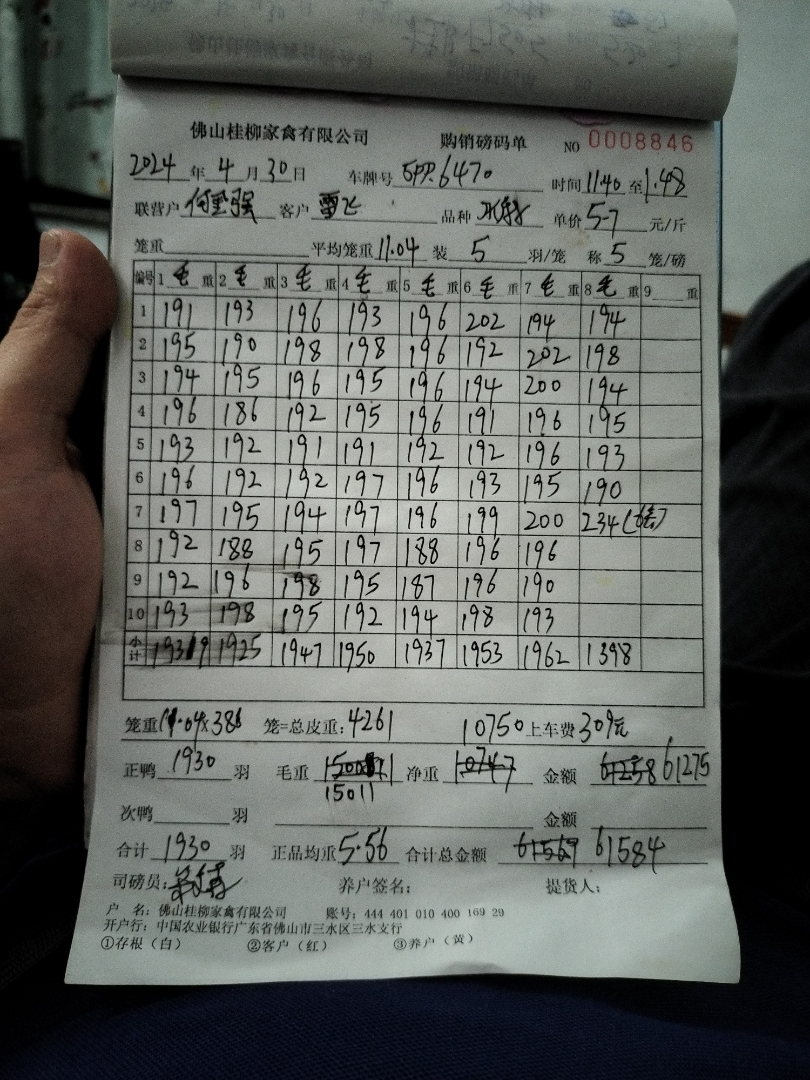 佛山桂柳家禽有限公司 购销磅码单 NO 0008846
2024 年 4 月 30 日 车牌号 6470 时间 11:40 至 1:48
联营户 何 强 客户 雷飞 品种 单价 5.7 元/斤
笼重 平均笼重 11.04 装 5 羽/笼 称 5 笼/磅
编号 1 毛 重 2 毛 重 3 毛 重 4 毛 重 5 毛 重 6 毛 重 7 毛 重 8 毛 重 9 重
1 191 193 196 193 196 202 194 194
2 195 190 198 198 196 192 202 198
3 194 195 196 195 196 194 200 194
4 196 186 192 195 196 191 196 195
5 193 192 191 191 192 192 196 193
6 196 192 192 197 196 193 195 190
7 197 195 194 197 196 199 200 234
8 192 188 195 197 188 196 196
9 192 196 198 195 187 196 190
10 193 198 195 192 194 198 193
小计 1939 1925 1947 1950 1937 1953 1962 1398
笼重 11.04x386 笼=总皮重: 4261 10750 上车费 309元
正鸭 1930 羽 毛重 净重 10747 金额 61258 61275
15011
次鸭 羽 金额
合计 1930 羽 正品均重 5.56 合计总金额 61569 61584
司磅员: 养户签名: 提货人:
户 名: 佛山桂柳家禽有限公司 账号: 444 401 010 400 169 29
开户行: 中国农业银行广东省佛山市三水区三水支行
①存根(白) ②客户(红) ③养户(黄)